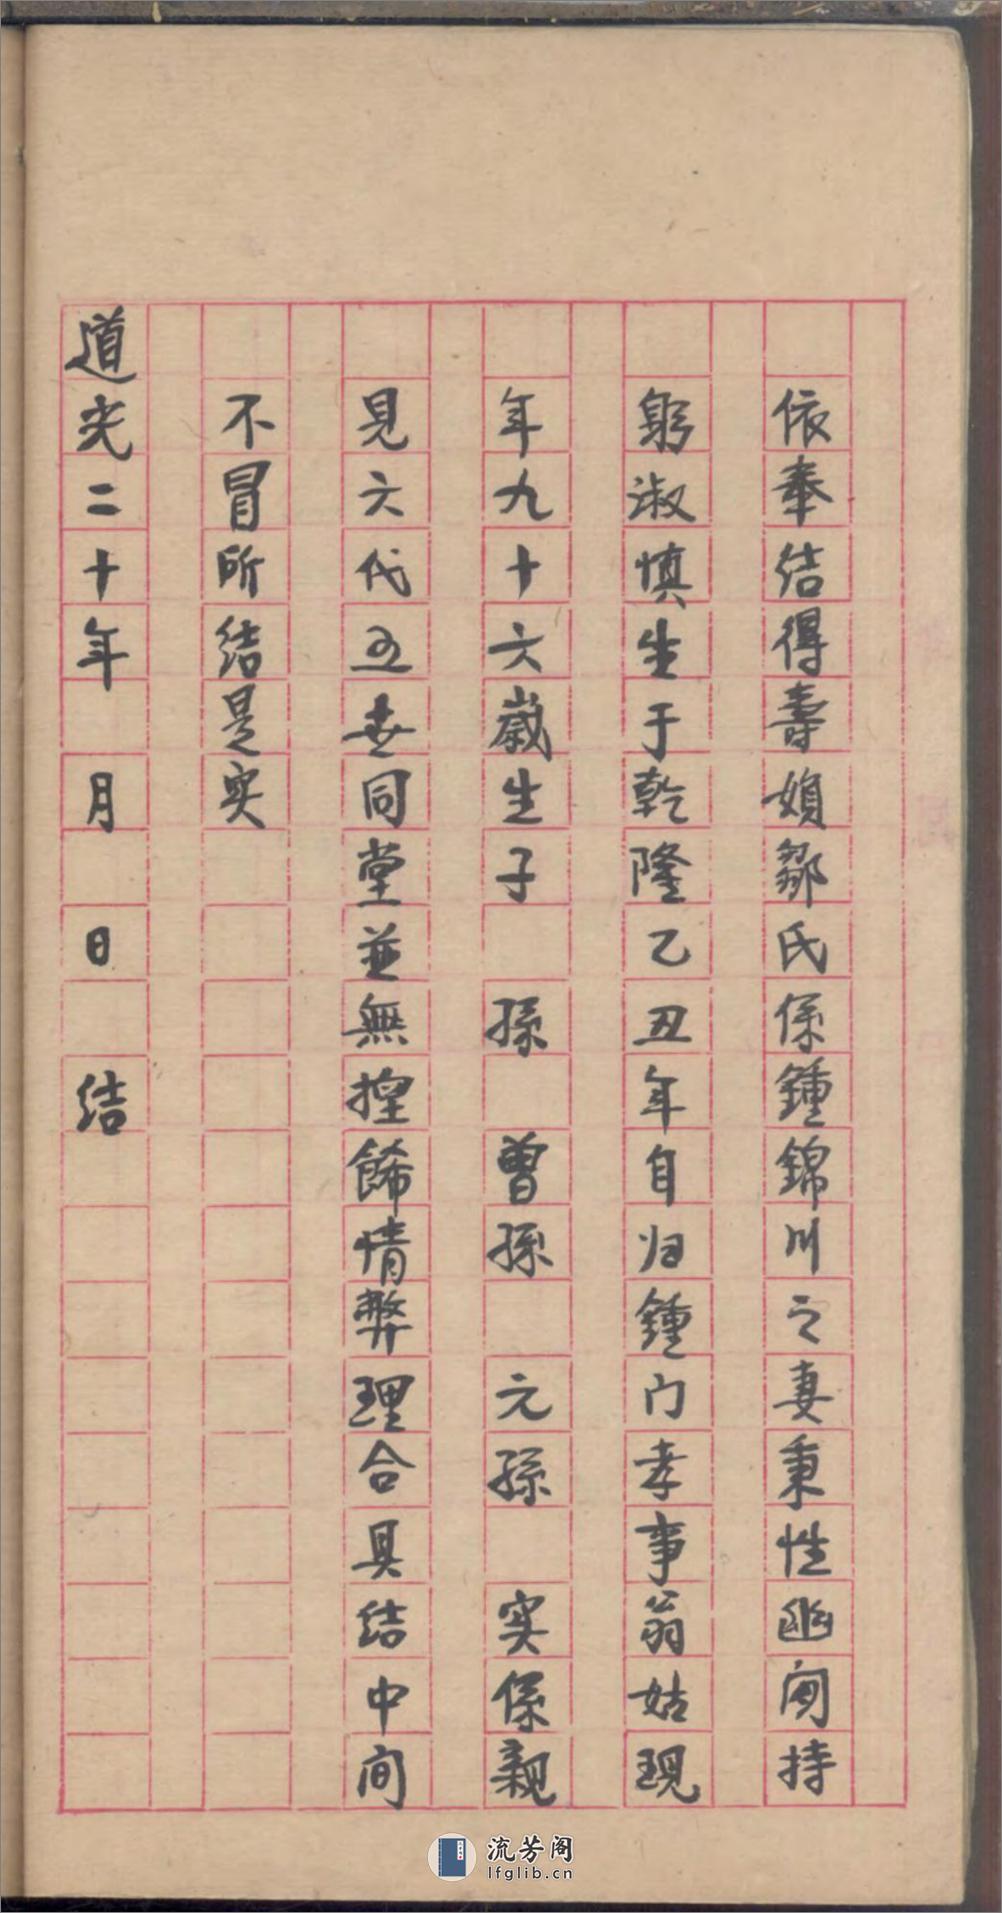 依奉结得壽嬪鄒氏係鍾錦川之妻秉性幽闲持
躬淑慎生于乾隆乙丑年自归鍾门孝事翁姑現
年九十六歲生子 孫 曾孫 元孫 实係親
見六代五世同堂並無捏餙情弊理合具结中间
不冒所结是实
道光二十年 月 日 结
流芳阁
lfglib.cn